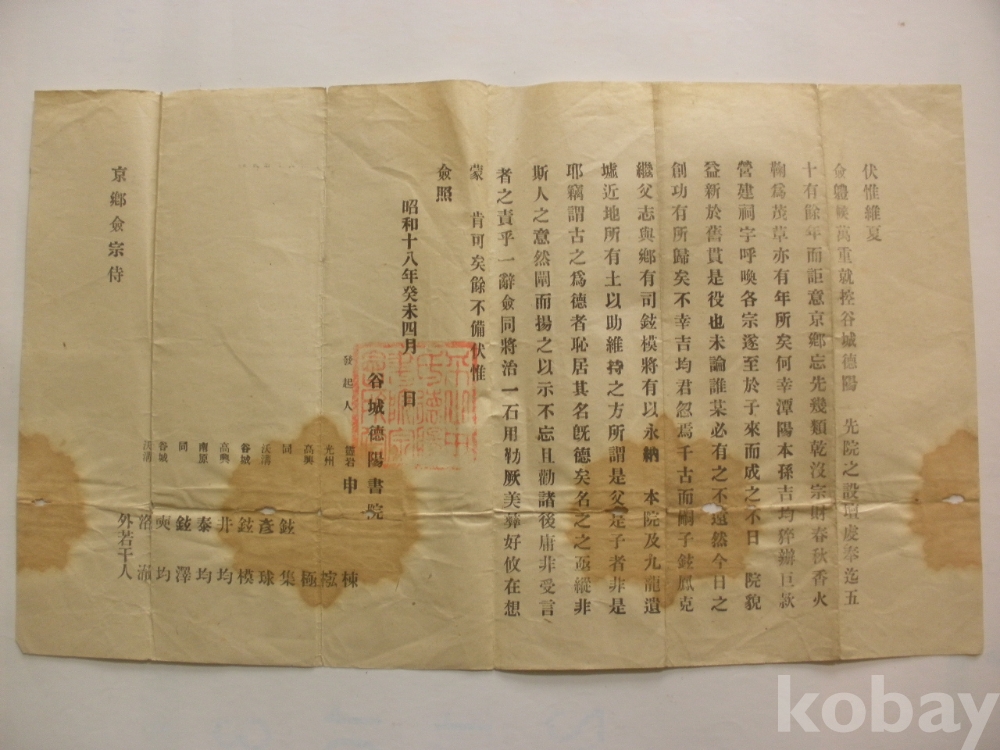 伏惟維夏
僉體候萬重就控谷城德陽 先院之設壇虔奉迄五
十有餘年而詎意京鄕忘先幾類乾沒宗財春秋香火
鞠爲茂草亦有年所矣何幸潭陽本孫吉均猝辦巨款
營建祠宇呼喚各宗遂至於子來而成之不日 院貌
益新於舊貫是役也未論誰某必有之不遠然今日之
創功有所歸矣不幸吉均君忽焉千古而嗣子鉉鳳克
繼父志與鄕有司鉉模將有以永納 本院及九龍遺
墟近地所有土以助維持之方所謂是父是子者非是
耶竊謂古之爲德者恥居其名旣德矣名之之亟縱非
斯人之意然闡而揚之以示不忘且勸諸後庸非受言
者之責乎一辭僉同將治一石用勒厥美彝好攸在想
蒙 肯可矣餘不備伏惟
僉照
昭和十八年癸未四月 日
谷城德陽書院
發起人 申 棟
光州
高興 極
同 鉉集
沃溝 彥球
谷城 鉉模
高興 井均
南原 泰均
同 鉉澤
谷城 奭均
沃溝 洛
外若干人
京鄕僉宗侍
kobay